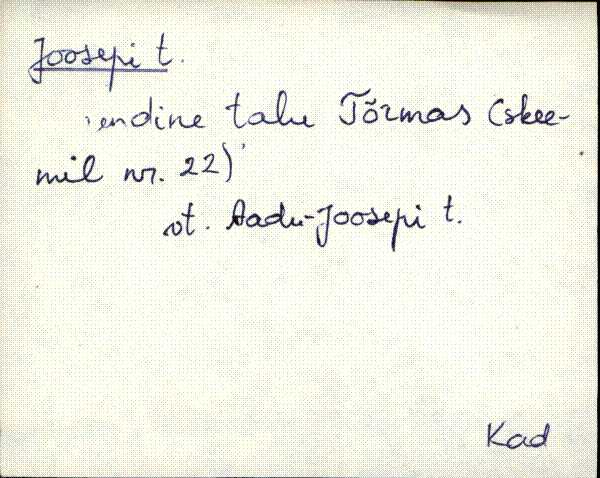 Joosepi t.
'endine talu Tõrmas (skee-
mil nr. 22)'
vt. Aadu-Joosepi t.
Kad